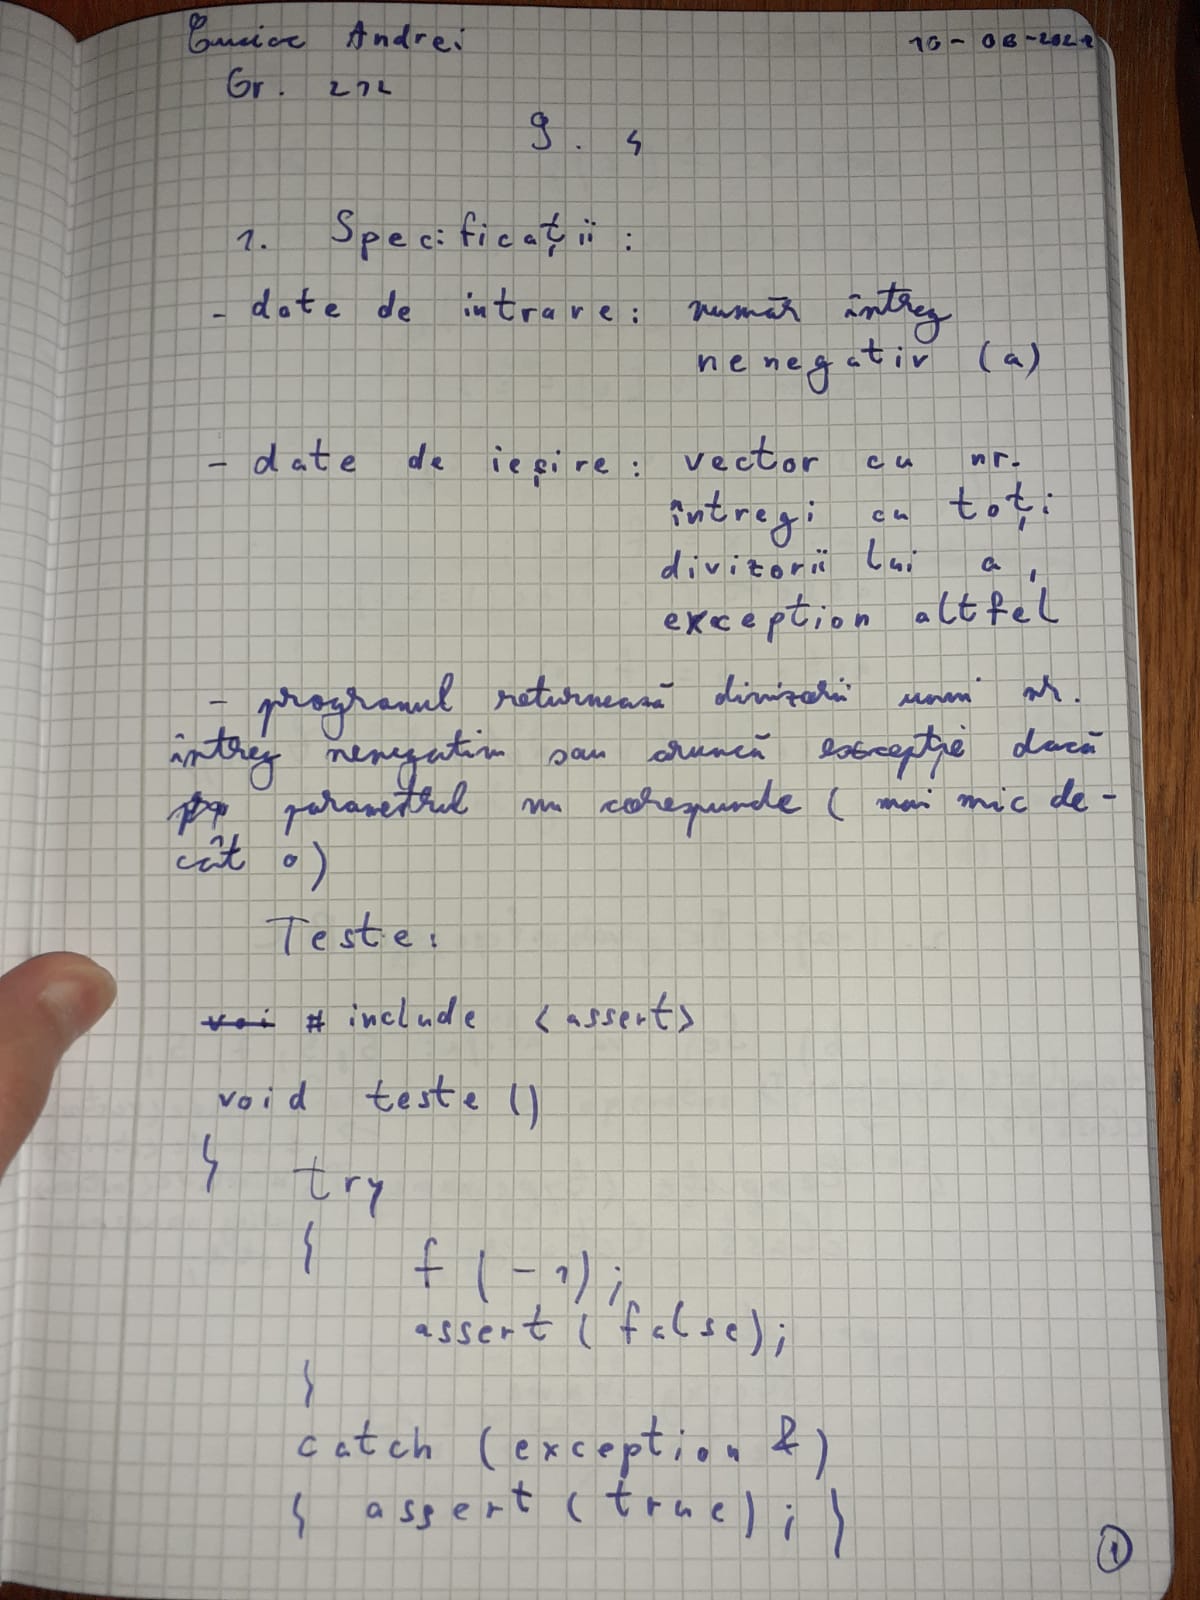 Andrei
Gr. 212
9. 4
1. Specificații:
- date de intrare: număr întreg
nenegativ (a)
- date de ieșire: vector cu nr.
întregi cu toți
divizorii lui a,
exception altfel
- programul returnează divizorii unui nr.
întreg nenegativ sau aruncă excepție dacă
parametrul nu corespunde (mai mic de-
cât 0)
Teste:
# include <assert>
void teste ()
{ try
{ f (-1);
assert (false);
}
catch (exception &)
{ assert (true); }
1